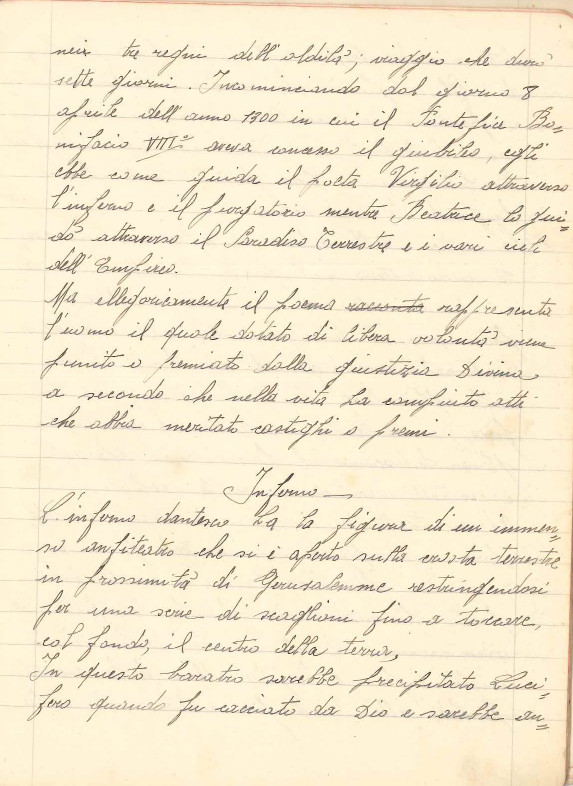 nei tre regni dell'aldilà; viaggio che durò
sette giorni. Incominciando dal giorno 8
aprile dell'anno 1300 in cui il Pontefice Bo=
nifacio VIIIº aveva concesso il giubileo, egli
ebbe come guida il poeta Virgilio attraverso
l'inferno e il purgatorio mentre Beatrice lo gui=
dò attraverso il Paradiso Terrestre e i vari cieli
dell'Empireo.
Ma allegoricamente il poema racconta rappresenta
l'uomo il quale dotato di libera volontà viene
punito o premiato dalla giustizia Divina
a secondo che nella vita ha compiuto atti
che abbia meritato castighi o premi.
Inferno
L'inferno dantesco ha la figura di un immen=
so anfiteatro che si è aperto sulla crosta terrestre
in prossimità di Gerusalemme restringendosi
per una serie di scaglioni fino a toccare,
col fondo, il centro della terra,
In questo baratro sarebbe precipitato Luci=
fero quando fu cacciato da Dio e sarebbe an=